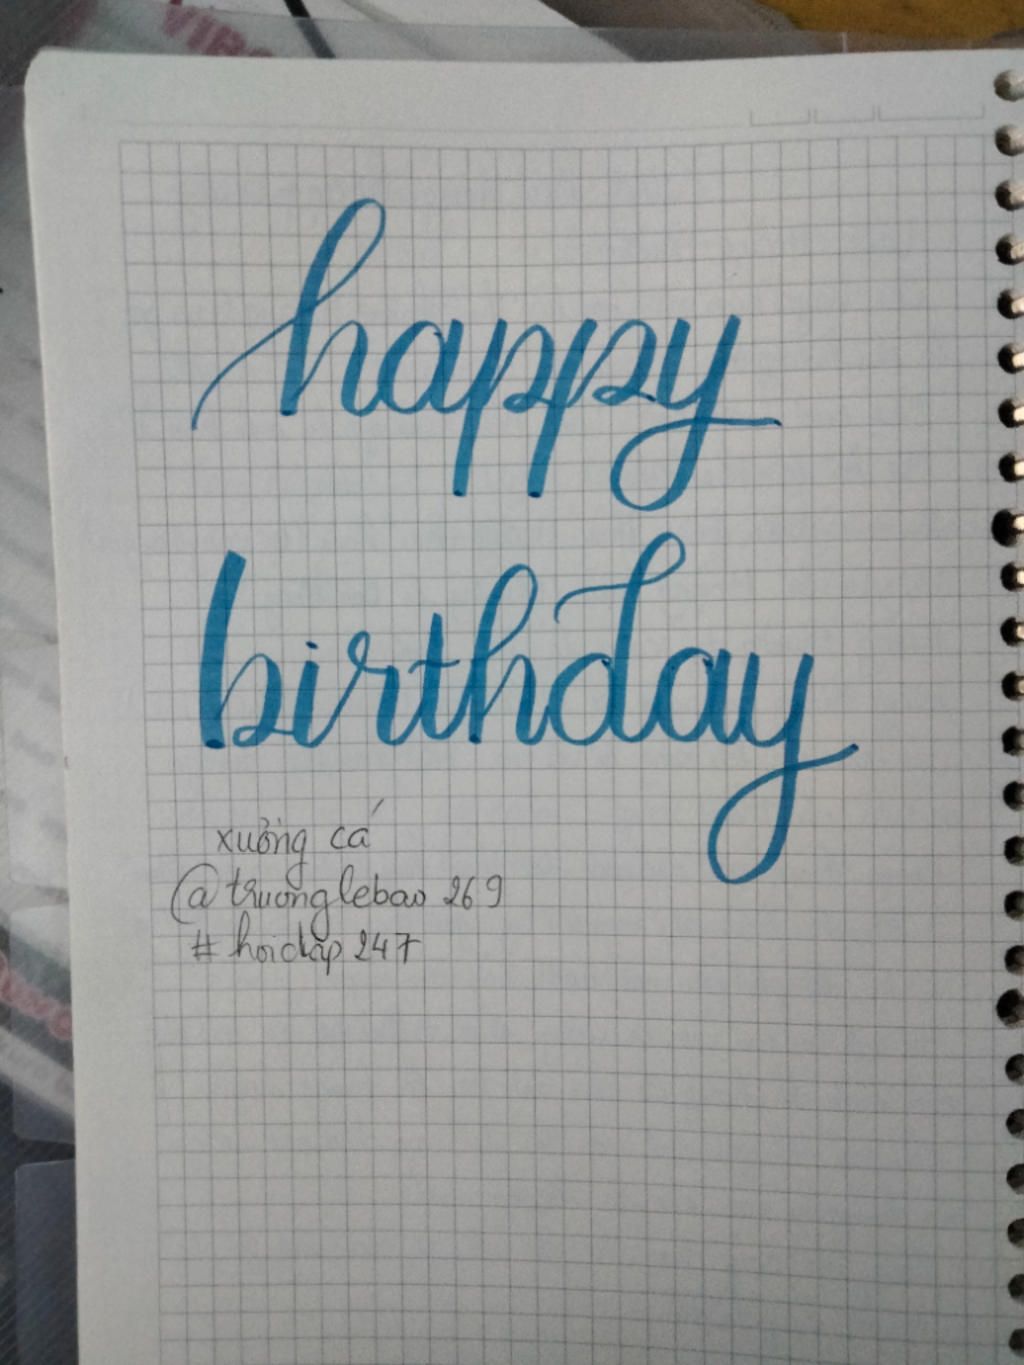 happy
birthday
xưởng cá
@truonglebao269
#hoidap247